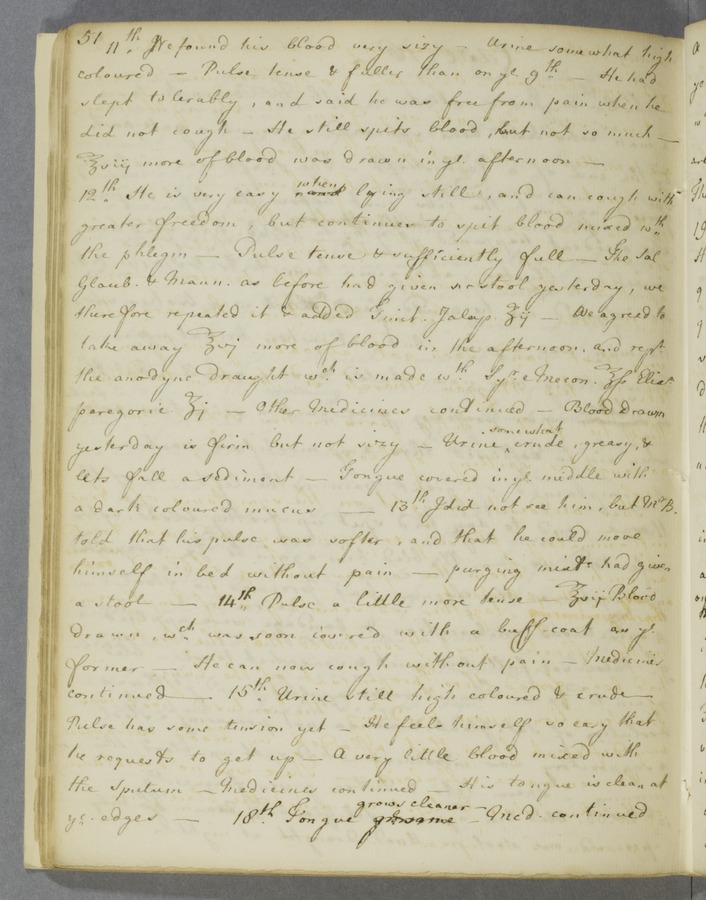 51 11th. We found his blood very sizy — Urine somewhat high
coloured — Pulse tense & fuller than on ye. 9th — He had
slept tolerably, and said he was free from pain when he
did not cough — He still spits blood, but not so much —
℥viij more of blood was drawn in ye. afternoon —
12th He is very easy when lying still, and can cough with
greater freedom, but continues to spit blood mixed wth
the phlegm — Pulse tense & sufficiently full — The Sal
Glaub. & Mann. as before had given no stool yesterday, we
therefore repeated it & added Tinct. Jalap. ʒij — We agreed to
take away ℥vj more of blood in the afternoon, and rept.
the anodyne Draught wch. is made wth. Syr. e Mecon. ℥ſs Elix.
paregoric ʒj — Other Medicines continued — Blood drawn
yesterday is firm but not sizy — Urine somewhat crude, greasy, &
lets fall a sediment — Tongue covered in ye. middle with
a dark coloured mucus — 13th I did not see him, but Mr. B.
told that his pulse was softer, and that he could move
himself in bed without pain — purging mixt. had given
a stool — 14th Pulse a little more tense — ℥vij Blood
drawn, wch was soon covered with a buff-coat as ye.
former — He can now cough without pain — Medicines
continued — 15th. Urine still high coloured & crude —
Pulse has some tension yet — He feels himself so easy that
he requests to get up — A very little blood mixed with
the Sputum — Medicines continued — His tongue is clean at
ye. edges — 18th. Tongue grows cleaner — Med. continued